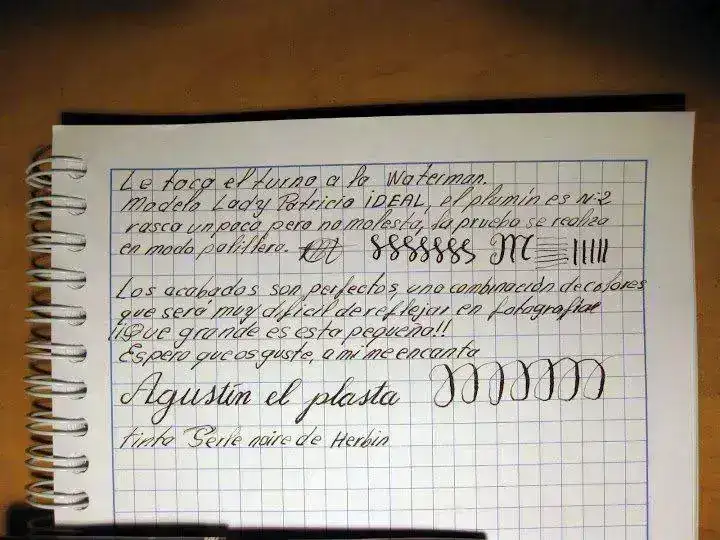 Le toca el turno a la Waterman.
Modelo Lady Patricia iDEAL, el plumín es Nº2
rasca un poco pero no molesta, la prueba se realiza
en modo palillero.
Los acabados son perfectos, una combinación de colores
que será muy dificil de reflejar en fotografias
¡¡Que grande es esta pequeña!!
Espero que os guste, a mi me encanta
Agustín el plasta
tinta Perle noire de Herbin